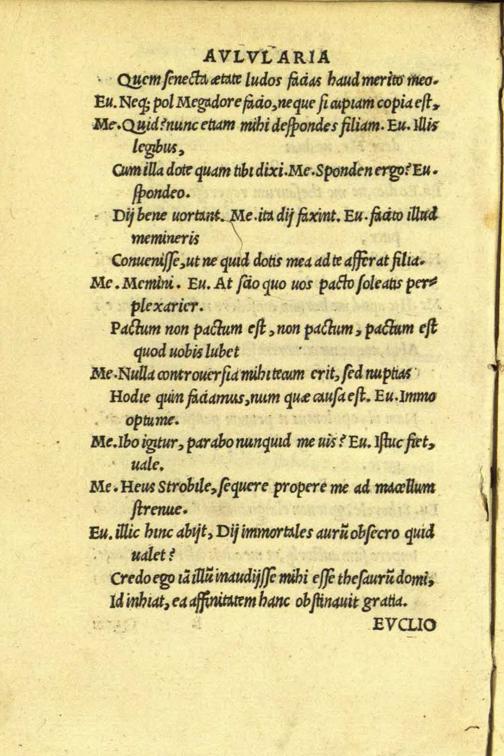 AVLVLARIA
Quem senecta ætate ludos facias haud merito meo.
Eu. Neq; pol Megadore facio, neque si cupiam copia est,
Me. Quid? nunc etiam mihi despondes filiam. Eu. Illis
legibus,
Cum illa dote quam tibi dixi. Me. Sponden ergo? Eu.
spondeo.
Dij bene uortant. Me. ita dij faxint. Eu. facito illud
memineris
Conuenisse, ut ne quid dotis mea ad te afferat filia.
Me. Memini. Eu. At scio quo uos pacto soleatis per=
plexarier.
Pactum non pactum est, non pactum, pactum est
quod uobis lubet
Me. Nulla controuersia mihi tecum erit, sed nuptias
Hodie quin faciamus, num quæ causa est. Eu. Immo
optume.
Me. Ibo igitur, parabo nunquid me uis? Eu. Istuc fiet,
uale.
Me. Heus Strobile, sequere propere me ad macellum
strenue.
Eu. illic hinc abijt, Dij immortales aurũ obsecro quid
ualet?
Credo ego iã illũ inaudijsse mihi esse thesaurũ domi,
Id inhiat, ea affinitatem hanc obstinauit gratia.
EVCLIO